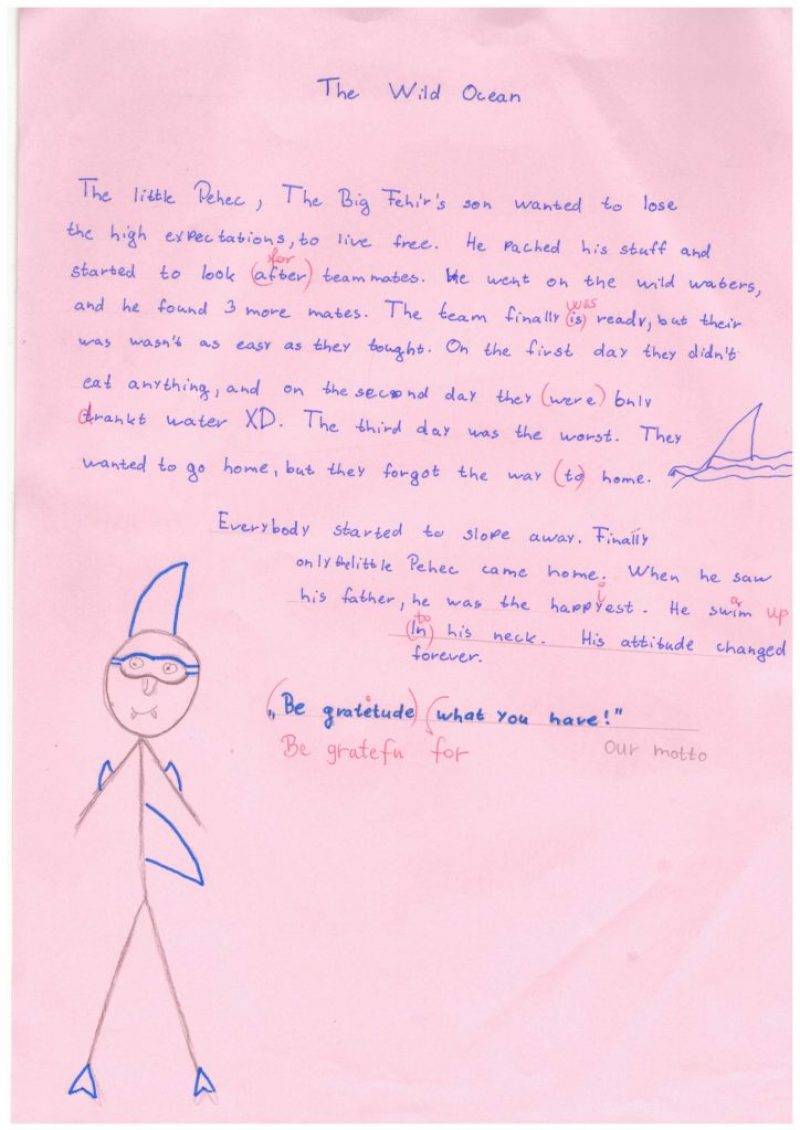 The Wild Ocean
The little Pehec, The Big Fehír's son wanted to lose
the high expectations, to live free. He pached his stuff and
for
started to look (after) teammates. We went on the wild waters,
was
and he found 3 more mates. The team finally (is) ready, but their
was wasn't as easy as they tought. On the first day they didn't
eat anything, and on the second day they (were) only
drankt water XD. The third day was the worst. They
wanted to go home, but they forgot the way (to) home.
Everybody started to slope away. Finally
only the little Pehec came home. When he saw
i
his father, he was the happyest. He swim up
a
to
(In) his neck. His attitude changed
forever.
(„Be gratetude) (what you have!"
i
Be gratefu for
our motto